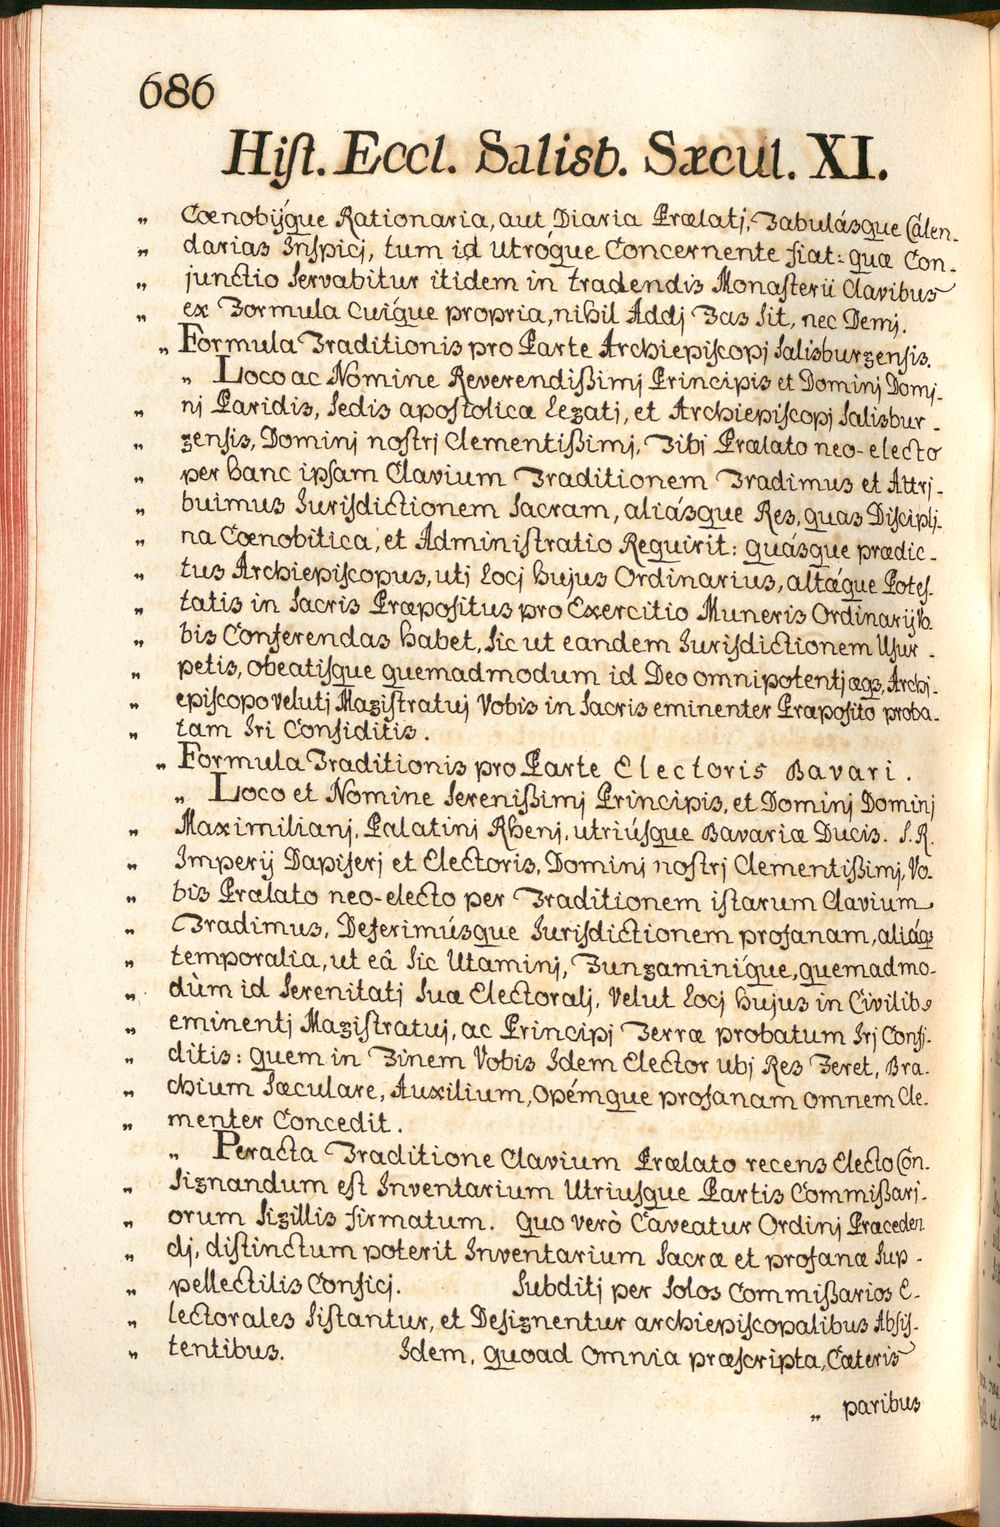 686
Hist. Eccl. Salisb. Sæcul. XI.
„ Cœnobijque Rationaria, aut Diaria Prælatj, Tabulásque Calen-
„ darias Inspicj, tum id utróque Concernente fiat: quæ Con-
„ junctio servabitur itidem in tradendis Monasterii Clavibus
„ ex Formula cuíque propria, nihil Addj Fas sit, nec Demj.
„ Formula Traditionis pro Parte Archiepiscopj Salisburgensis.
„ Loco ac Nomine Reverendißimj Principis et Dominj Domj-
„ nj Paridis, Sedis apostolicæ Legatj, et Archiepiscopj Salisbur-
„ gensis, Dominj nostrj Clementißimj, Tibj Prælato neo-electo
„ per hanc ipsam Clavium Traditionem Tradimus et Attrj-
„ buimus Jurisdictionem Sacram, aliásque Res, quas Disciplj-
„ na Cœnobitica, et Administratio Requirit: quásque prædic-
„ tus Archiepiscopus, utj Locj hujus Ordinarius, altáque Potes-
„ tatis in Sacris Præpositus pro Exercitio Muneris Ordinarij Vo-
„ bis Conferendas habet, sic ut eandem Jurisdictionem Usur-
„ petis, obeatisque quemadmodum id Deo omnipotentj æqꝫ, Archj-
„ episcopo velutj Magistratuj Vobis in Sacris eminenter Præposito proba-
„ tam Iri Confiditis.
„ Formula Traditionis pro Parte Electoris Bavari.
„ Loco et Nomine Serenißimj Principis, et Dominj Dominj
„ Maximilianj, Palatinj Rhenj, utriúsque Bavariæ Ducis. S. R.
„ Imperij Dapiferj et Electoris, Dominj nostrj Clementißimj, Vo-
„ bis Prælato neo-electo per Traditionem istarum Clavium
„ Tradimus, Deferimúsque Jurisdictionem profanam, aliáqꝫ
„ temporalia, ut eâ sic Utaminj, Fungaminíque, quemadmo-
„ dùm id Serenitatj Suæ Electoralj, velut Locj hujus in Civilibs
„ eminentj Magistratuj, ac Principj Terræ probatum Irj Confi-
„ ditis: quem in Finem Vobis Idem Elector ubj Res Feret, Bra-
„ chium Sæculare, Auxilium, Opémque profanam omnem Cle-
„ menter Concedit.
„ Peracta Traditione Clavium Prælato recens Electo Con-
„ signandum est Inventarium Utriusque Partis Commißarj-
„ orum Sigillis firmatum. Quo verò Caveatur Ordinj Præceden
„ dj, distinctum poterit Inventarium Sacræ et profanæ Sup-
„ pellectilis Conficj. Subditj per Solos Commißarios E-
„ lectorales Sistantur, et Designentur archiepiscopalibus Absis-
„ tentibus. Idem, quoad omnia præscripta, Cæteris
„ paribus